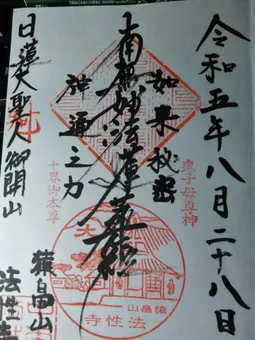 令和五年八月二十八日
如来秘密
南無妙法蓮華経
神通之力
日蓮大聖人御開山
猿畠山
法性寺
鬼子母尊神
十界御本尊
猿畠山
法性寺